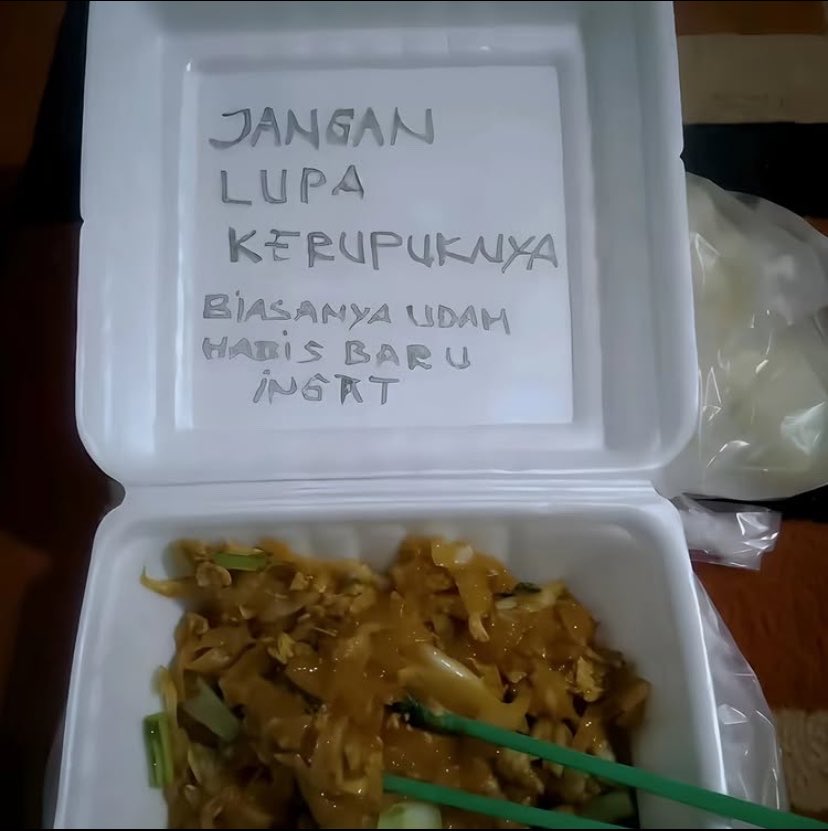 JANGAN
LUPA
KERUPUKNYA
BIASANYA UDAH
HABIS BARU
INGAT